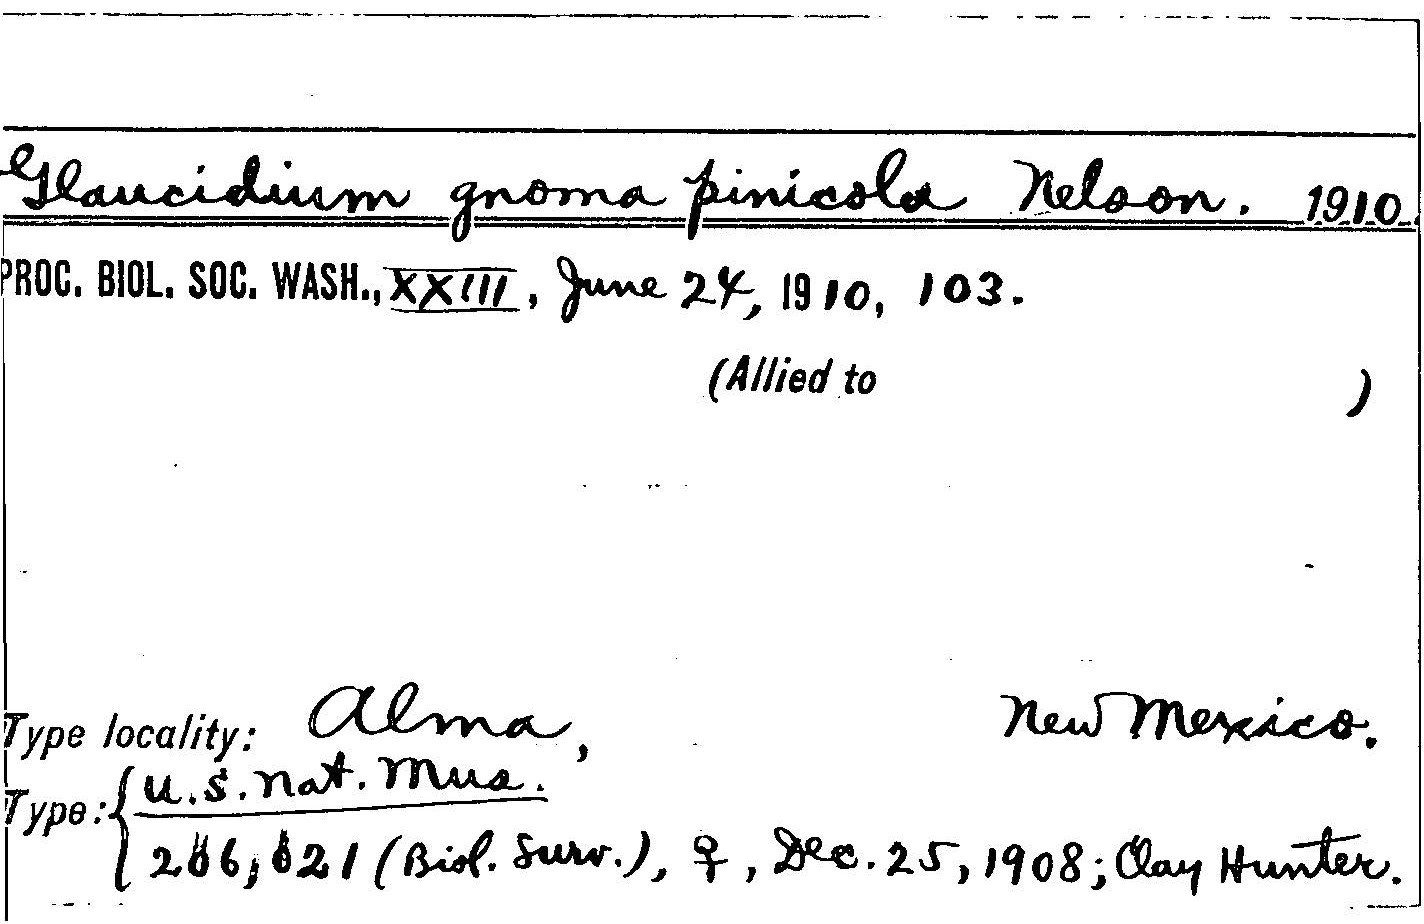 Glaucidium gnoma pinicola Nelson. 1910.
PROC. BIOL. SOC. WASH., XXIII, June 24, 1910, 103.
(Allied to )
Type locality: Alma, New Mexico.
Type: { U.S. Nat. Mus.
(Biol. Surv.), ♀, Dec. 25, 1908; Clay Hunter.